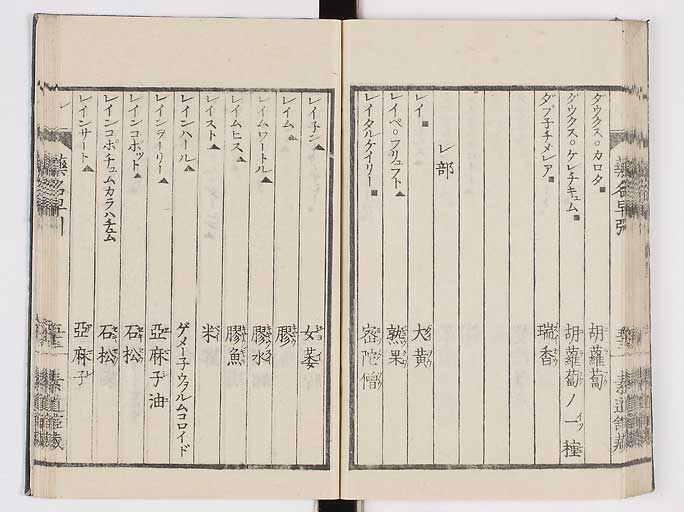 藥名早引
ダウクス。カロタ■ 胡蘿蔔
ダウクス。ケレチキュム■ 胡蘿蔔ノ一種
ダプ子チメレア■ 瑞香
レ部
レイ■ 大黄
レイペ。フリュフト▲ 熟果
レイタルゲイリー■ 密陀僧
レイ子ン▲ 女萎
レイム▲ 膠
レイムワートル▲ 膠水
レイムヒス▲ 膠魚
レイスト▲ 米
レインハール▲ ゲメー子ウァルムコロイド
レインヲーリー▲ 亞麻子油
レインコポット▲ 石松
レインコポチュムカラハチュム 石松
レインサート▲ 亞麻子
藥名早引